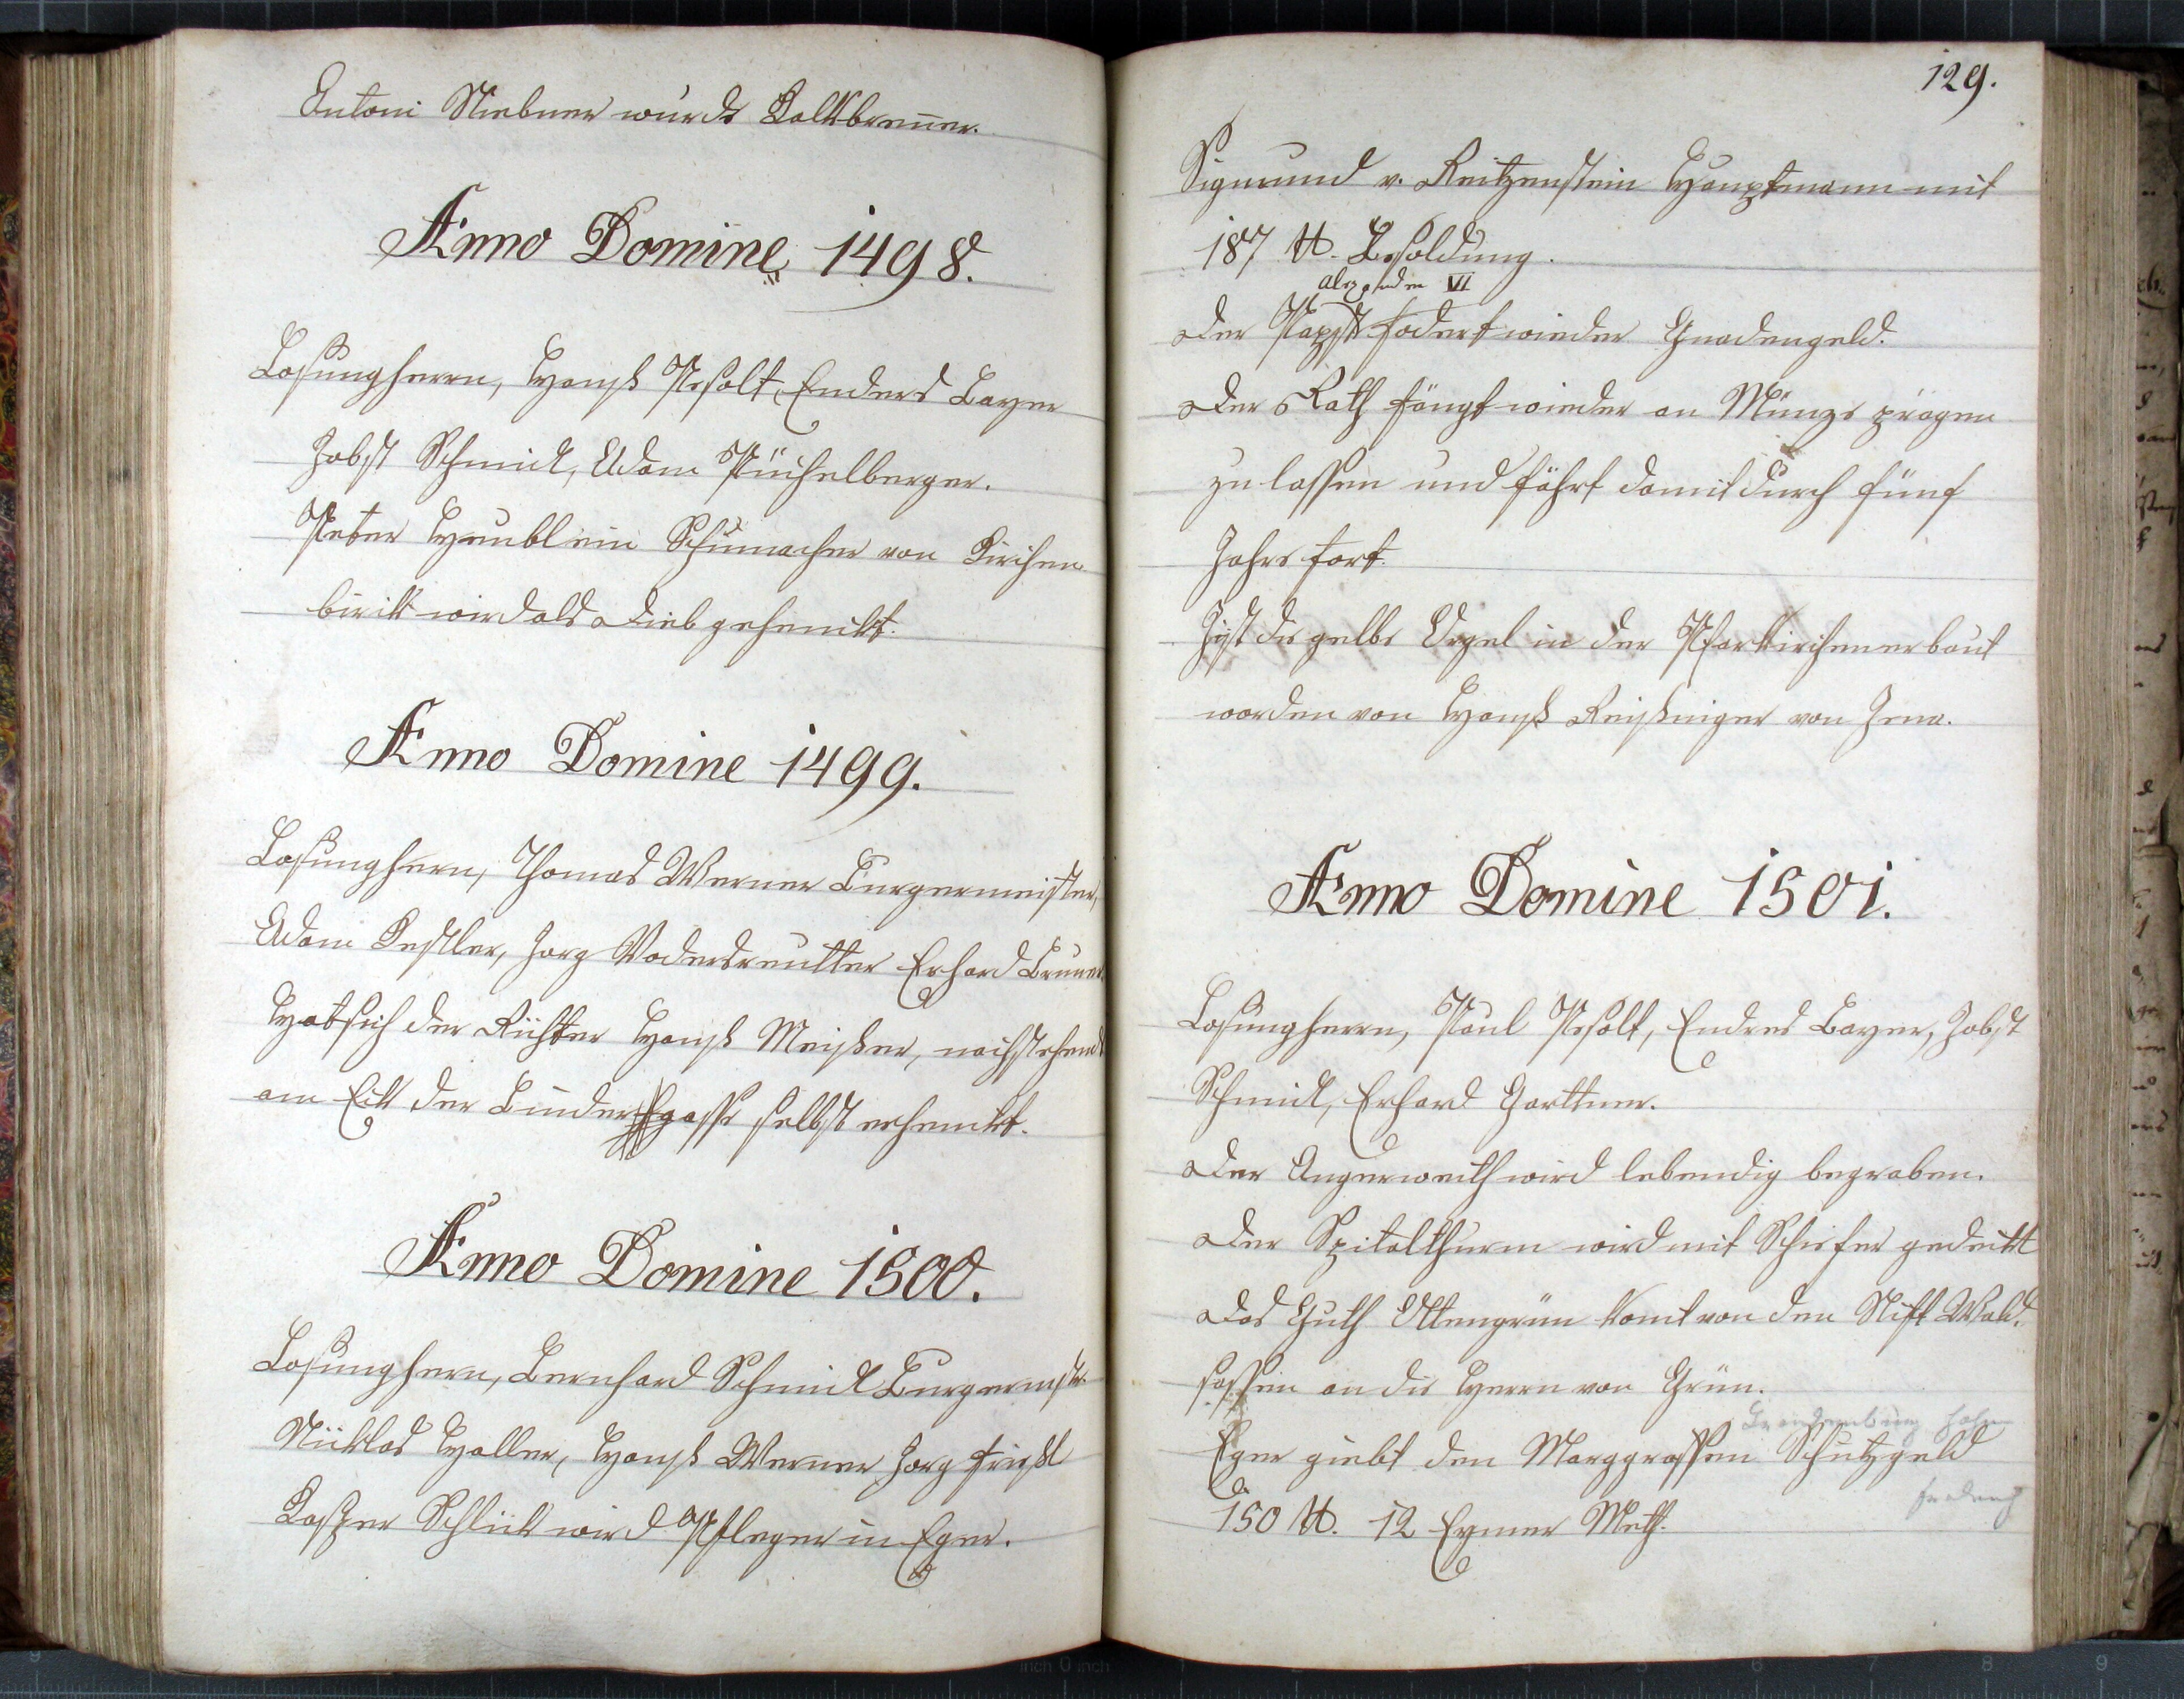 Antoni Niebner wurde Kalkbrenner.
Anno Domine 1498.
Losungherrn, Hanß Pesolt, Enders Bayer
Jobst Schmidl, Adam Püchelberger.
Peter Heublein Schumacher von Kirchen
birik wird als Dieb gehenckt.
Anno Domine 1499.
Losunghern, Thomas Werner Burgermeister,
Adam Kestler, Jorg Vodersreutter Erhard Bruner
Hat sich der Richter Hanß Meißner, nachstehend
am Eck der Bindergasse selbst erhenckt.
Anno Domine 1500.
Losunghern, Bernhard Schmidl Burgermstr.
Nicklas Haller, Hanß Werner, Jorg Frießl
Kasper Schlick wird Pfleger in Eger.
129.
Sigmund v. Reitzenstein Hauptmann mit
187 ℔. Besoldung.
Alexander VI
Der Papst fodert wieder Gnadengeld.
Der Rath fängt wieder an Münze prägen
zu lassen und fährt damit durch fünf
Jahre fort.
Jst die gelbe Orgel in der Pfarkirchen erbaut
worden von Hanß Reißniger von Jena.
Anno Domine 1501.
Losungherrn, Paul Pesolt, Endres Bayer, Jobst
Schmidl, Erhard Garttner.
Der Angerweith wird lebendig begraben.
Der Spitalthurm wird mit Schiefer gedeckt
Das Guth Ottengrün komt von den Stift Wald,
sassen an die Herrn von Grün.
Brandenburg
Eger giebt den Marggrafen Schutzgeld
Frederich
150 ℔. 12 Eymer Meth.